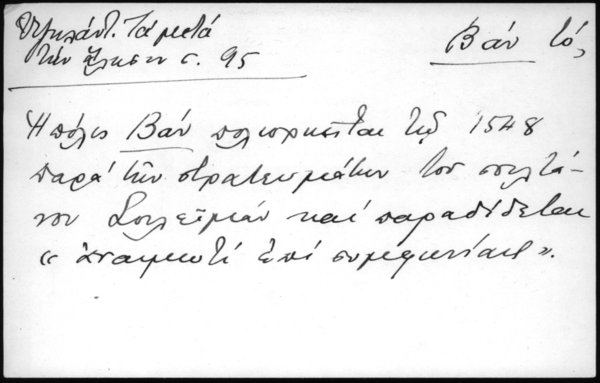 Ἀμάντ. Τά μετά
τήν ἅλωσιν σ. 95
Βάν τό,
Ἡ πόλις Βάν πολιορκεῖται τῷ 1548
παρά τῶν στρατευμάτων τοῦ σουλτά-
νου Σουλεϊμάν καί παραδίδεται
« ἀναιμωτί ἐπί συμφωνίαις ».